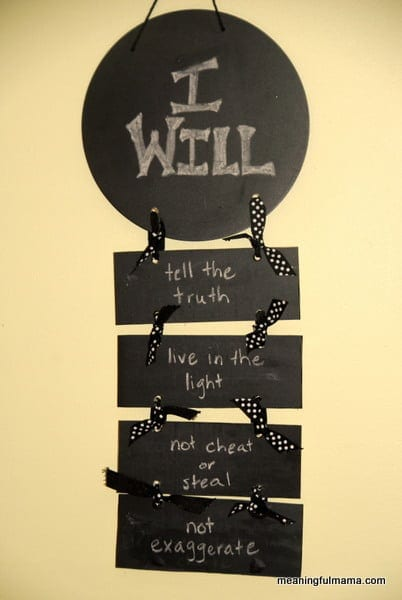 I
WILL
tell the
truth
live in the
light
not cheat
or
steal
not
exaggerate
meaningfulmama.com